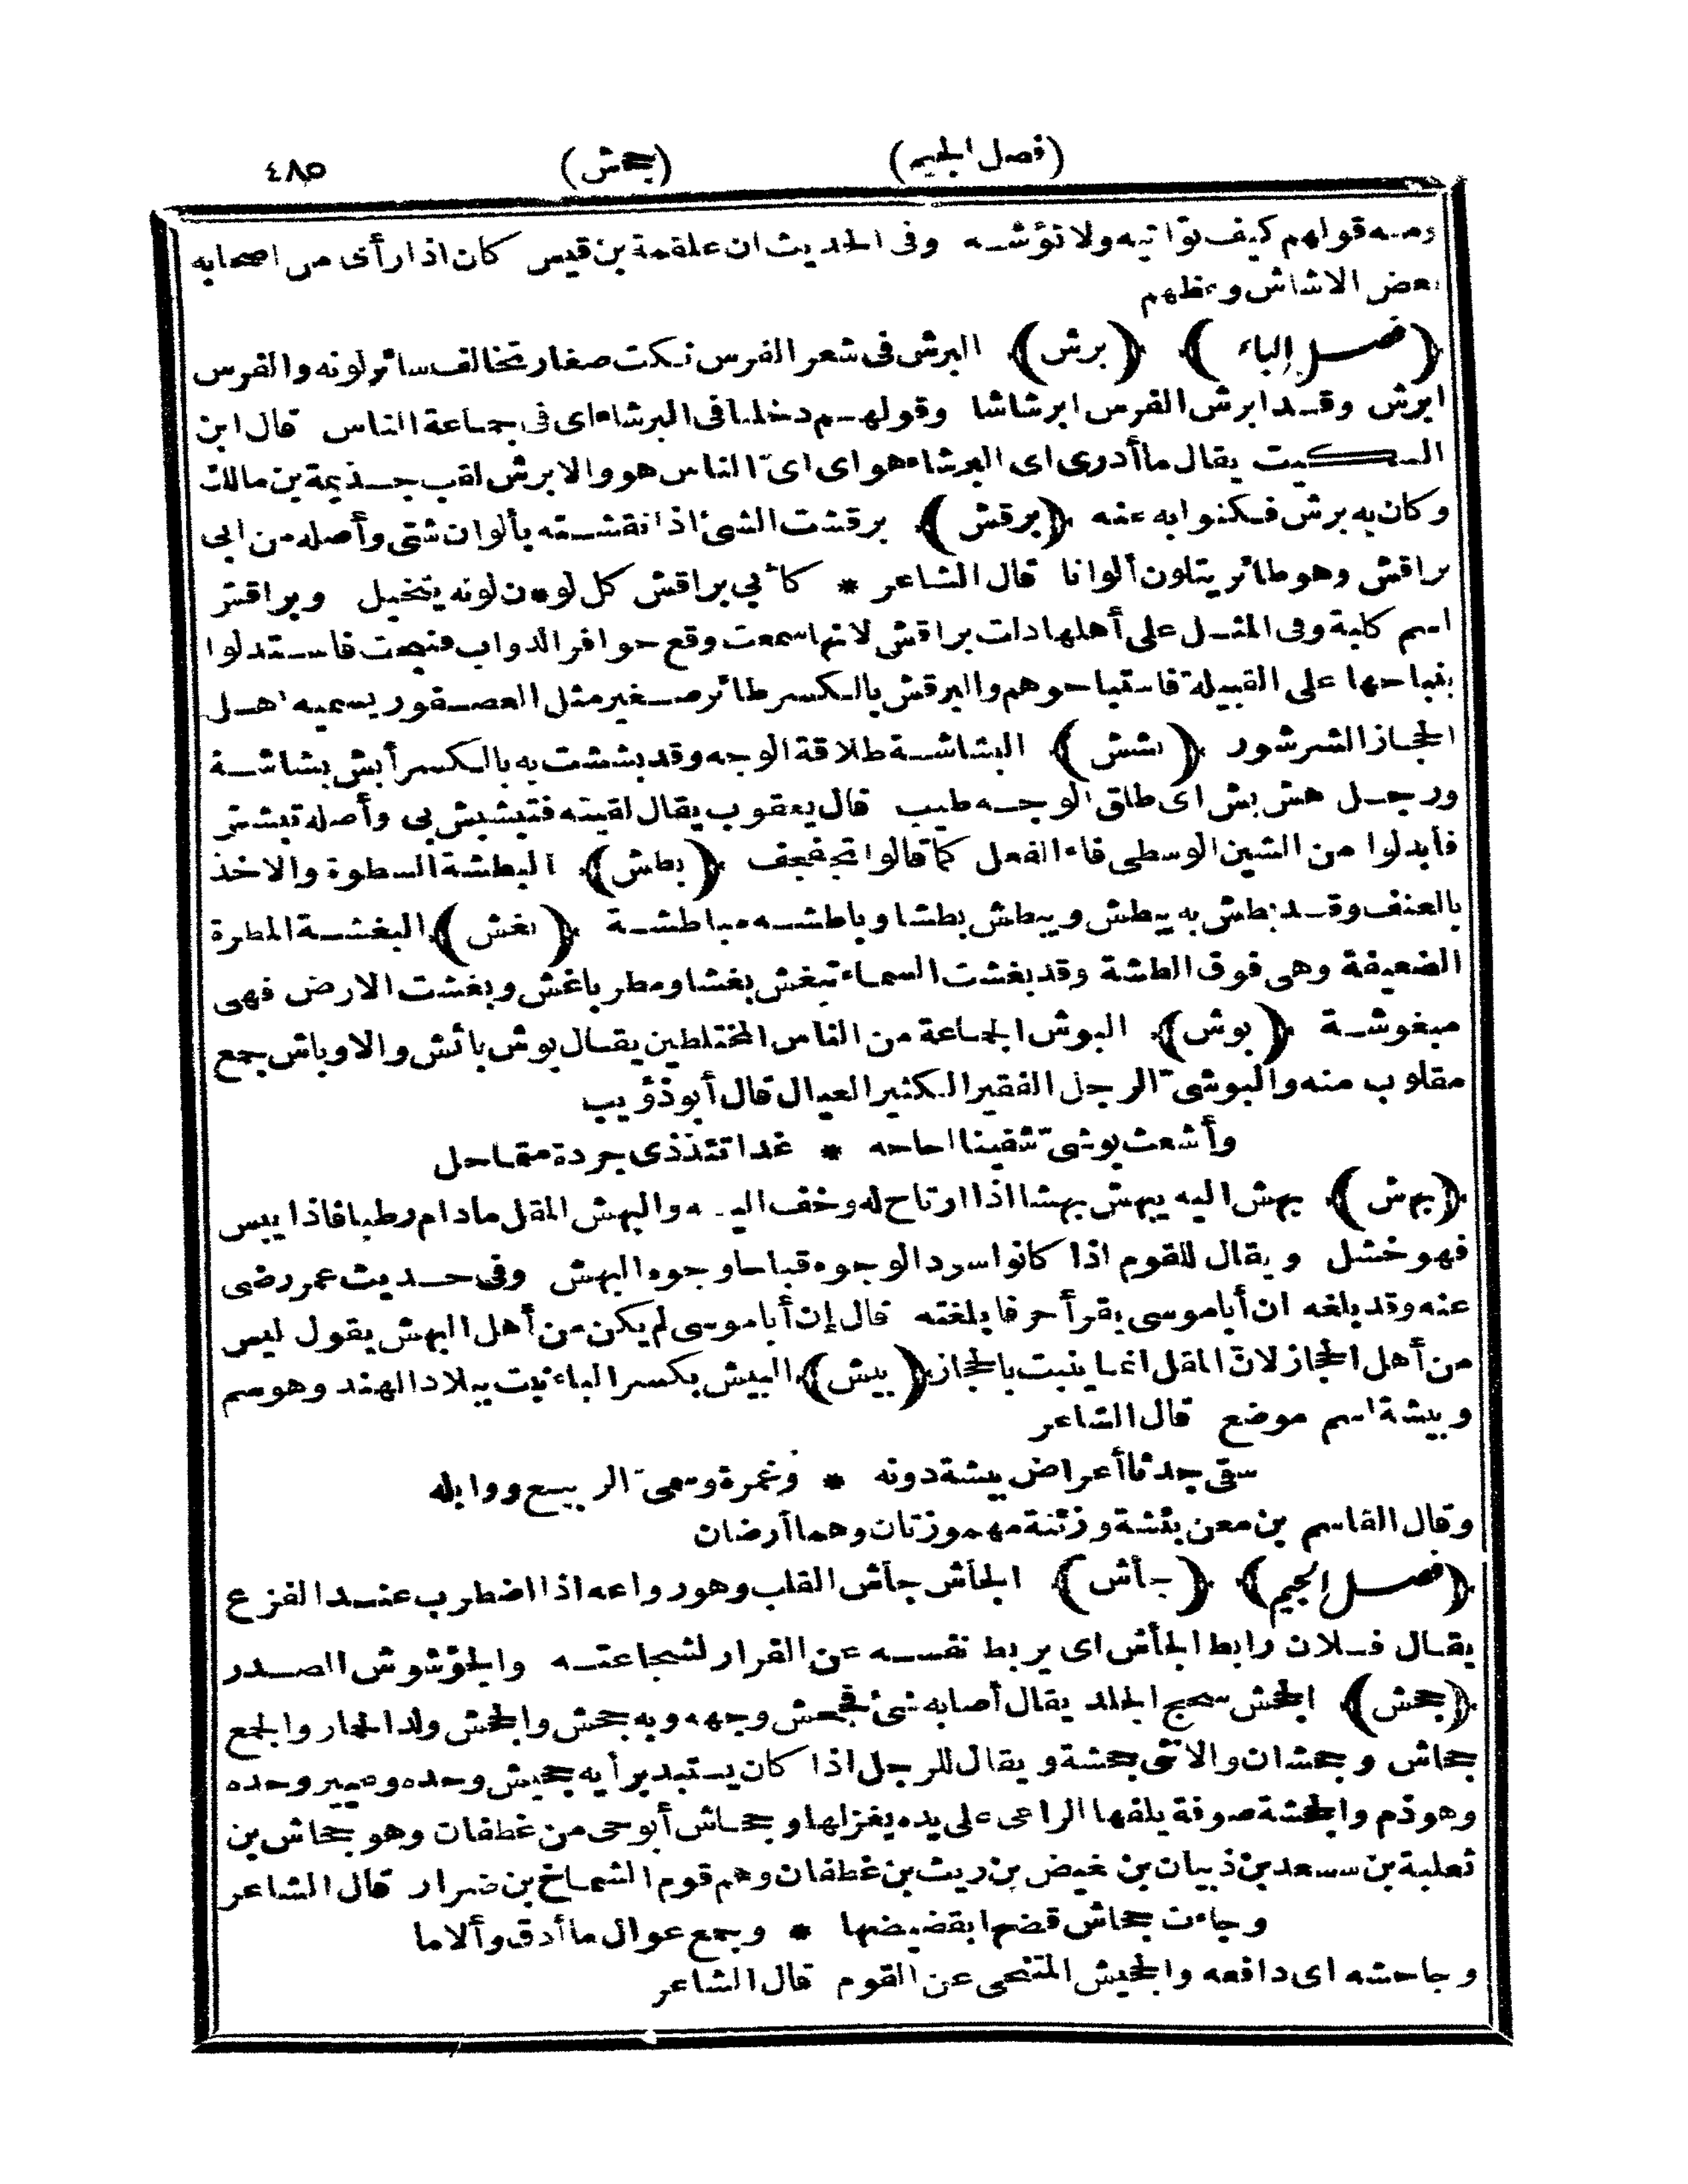 (فصل الجيم) (جحش) ٤٨٥
ومنه قولهم كيف تؤاتيه ولا تؤشه وفى الحديث ان علقمة بن قيس كان اذا رأى من اصحابه
بعض الاشاش وعظهم
﴿فصل الباء﴾ ﴿برش﴾ البرش فى شعر الفرس نكت صغار تخالف سائر لونه والفرس
ابرش وقد ابرش الفرس ابرشاشا وقولهم دخلنا فى البرشاء اى فى جماعة الناس قال ابن
السكيت يقال ما أدرى اى البرشاء هو اى اىّ الناس هو والابرش لقب جذيمة بن مالك
وكان به برش فكنوا به عنه ﴿برقش﴾ برقشت الشئ اذا نقشته بألوان شتى وأصله من ابى
براقش وهو طائر يتلون ألوانا قال الشاعر * كأبى براقش كل لو * ن لونه يتخيل وبراقش
اسم كلبة وفى المثل على أهلها دلت براقش لانها سمعت وقع حوافر الدواب فنبحت فاستدلوا
بنباحها على القبيلة فاستباحوهم والبرقش بالكسر طائر صغير مثل العصفور يسميه اهل
الحجاز الشرشور ﴿بشش﴾ البشاشة طلاقة الوجه وقد بششت به بالكسر أبش بشاشة
ورجل هش بش اى طلق الوجه طيب قال يعقوب يقال لقيته فتبشبش بى وأصله تبشش
فأبدلوا من الشين الوسطى فاء الفعل كما قالوا تجفجف ﴿بطش﴾ البطشة السطوة والاخذ
بالعنف وقد بطش به يبطش ويبطش بطشا وباطشه مباطشة ﴿بغش﴾ البغشة المطرة
الضعيفة وهى فوق الطشة وقد بغشت السماء تبغش بغشا ومطر باغش وبغشت الارض فهى
مبغوشة ﴿بوش﴾ البوش الجماعة من الناس المختلطين يقال بوش بائش والاوباش جمع
مقلوب منه والبوشىّ الرجل الفقير الكثير العيال قال أبو ذؤيب
وأشعث بوشىّ شفينا احاحه * غداتئذ ذى جردة متماحل
﴿بهش﴾ بهش اليه يبهش بهشا اذا ارتاح له وخف اليه والبهش المقل ما دام رطبا فاذا يبس
فهو خشل ويقال للقوم اذا كانوا سود الوجوه قباحا وجوه البهش وفى حديث عمر رضى
عنه وقد بلغه ان أبا موسى يقرأ حرفا بلغته قال إن أبا موسى لم يكن من أهل البهش يقول ليس
من أهل الحجاز لانّ المقل انما ينبت بالحجاز ﴿بيش﴾ البيش بكسر الباء نبت ببلاد الهند وهو سم
وبيشة اسم موضع قال الشاعر
سقى جدثا أعراض بيشة دونه * وغمرة وسمىّ الربيع ووابله
وقال القاسم بن معن بئشة وزئنة مهموزتان وهما أرضان
﴿فصل الجيم﴾ ﴿جأش﴾ الجأش جأش القلب وهو رواعه اذا اضطرب عند الفزع
يقال فلان رابط الجأش اى يربط نفسه عن القرار لشجاعته والجؤشوش الصدر
﴿جحش﴾ الجحش سحج الجلد يقال أصابه شئ فجحش وجهه وبه جحش والجحش ولد الحمار والجمع
جحاش وجحشان والانثى جحشة ويقال للرجل اذا كان يستبد برأيه جحيش وحده وعيير وحده
وهو ذم والجحشة صوفة يلفها الراعى على يده يغزلها وجحاش أبو حى من غطفان وهو جحاش بن
ثعلبة بن سعد بن ذبيان بن بغيض بن ريث بن غطفان وهم قوم الشماخ بن ضرار قال الشاعر
وجاءت جحاش قضها بقضيضها * وجمع عوال ما أدق وألاما
وجاحشه اى دافعه والجحيش المتنحى عن القوم قال الشاعر